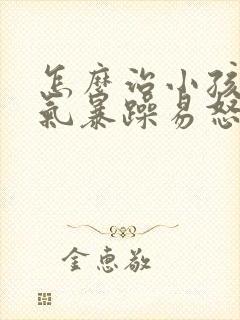 怎麽治小孩
氣暴躁易怒
金惠敬